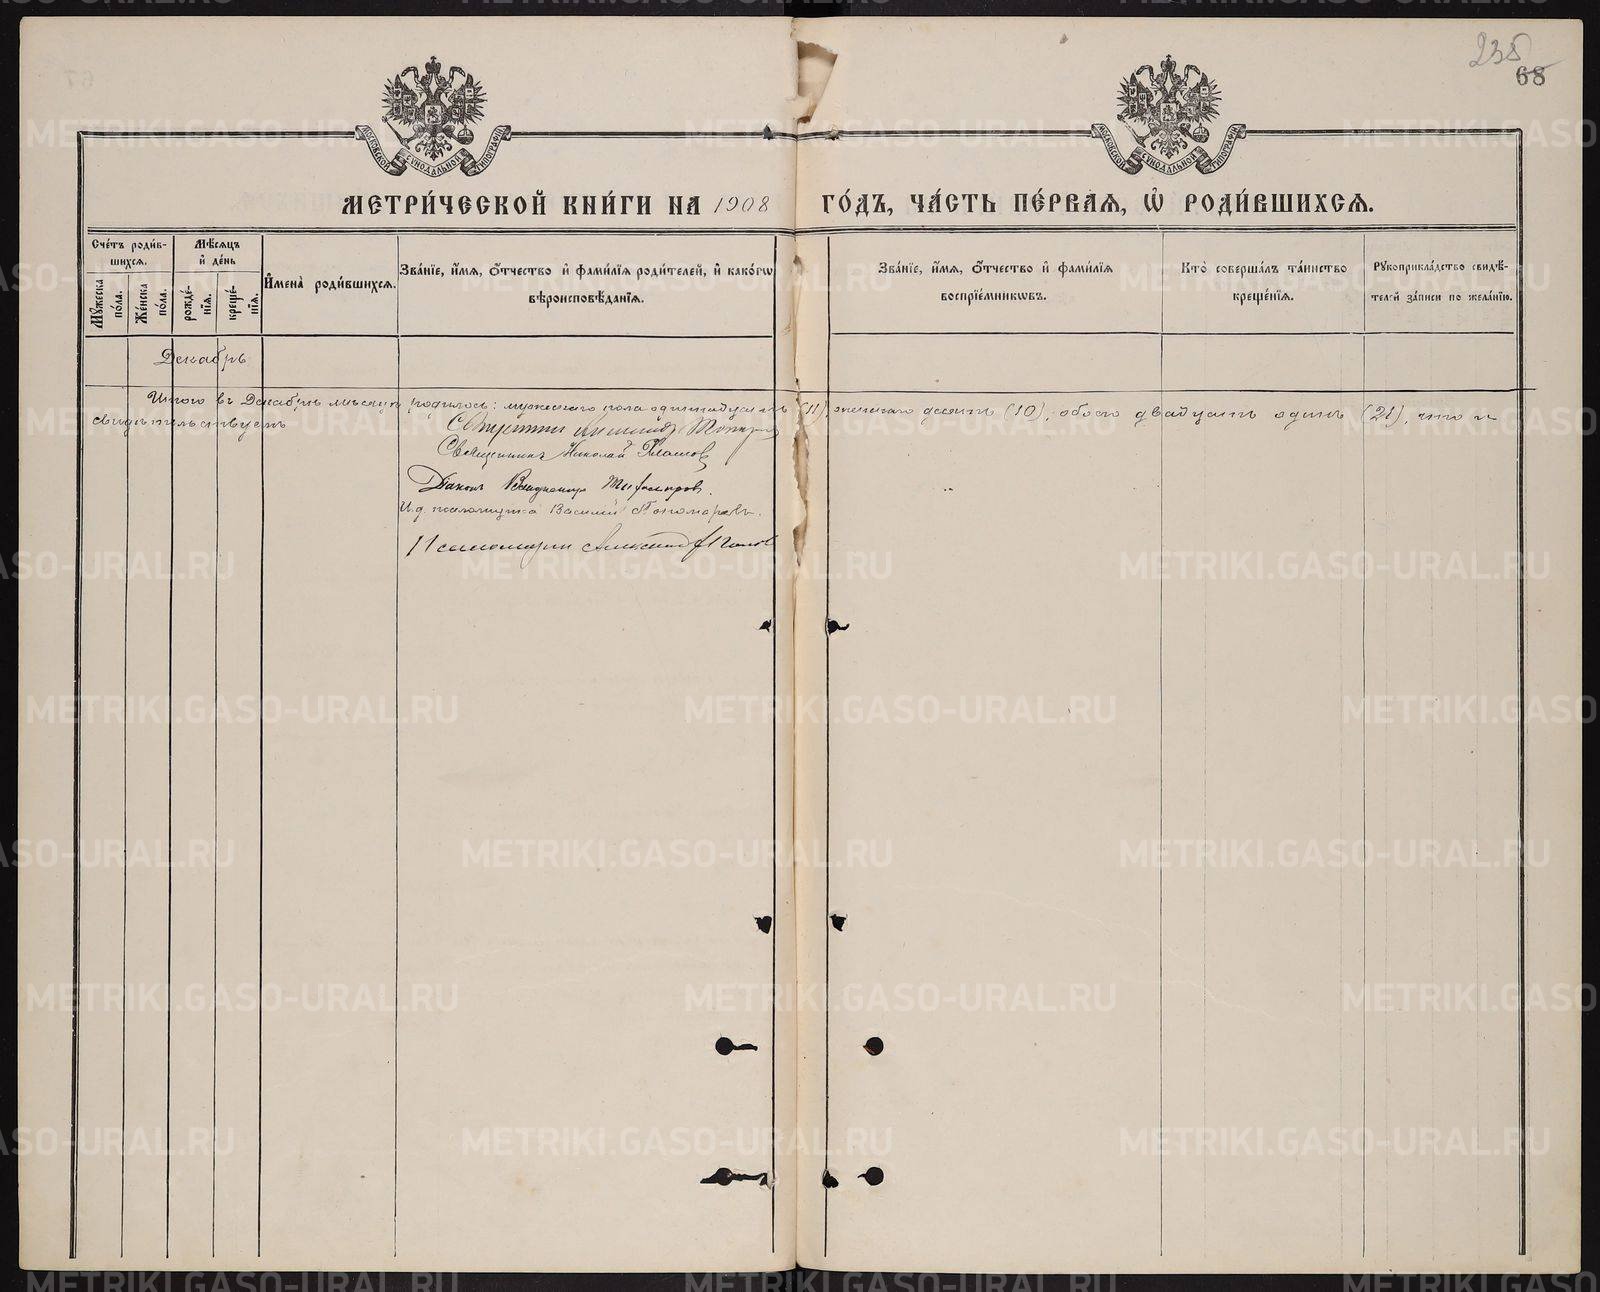 235
68
МОСКОВСКОЙ СѴНОДАЛЬНОЙ ТИПОГРАФІИ
МОСКОВСКОЙ СѴНОДАЛЬНОЙ ТИПОГРАФІИ
МЕТРИ́ЧЕСКОЙ КНИ́ГИ НА 1908 ГО́ДЪ, ЧА́СТЬ ПЕ́РВАЯ, Ѽ РОДИ́ВШИХСЯ.
Сче́тъ роди́в-
шихся.
Мѣ́сяцъ
и҆ де́нь
Мꙋ́жеска по́ла.
Же́нска по́ла.
рожде́-нїя.
креще́-нїя.
И҆мена̀ роди́вшихся.
Зва́нїе, и҆́мя, о҆́тчество и҆ фами́лїя роди́телей, и҆ како́гѡ
вѣроисповѣ́данїя.
Зва́нїе, и҆́мя, о҆́тчество и҆ фами́лїя
воспрїе́мникѡвъ.
Кто̀ соверша́лъ та́инство
креще́нїя.
Рꙋкоприкла́дство свидѣ́-
телей за́писи по жела́нїю.
Декабрь
Итого въ Декабрѣ мѣсяцѣ родилось: мужескаго пола одиннадцать (11), женскаго десять (10), обоего двадцать одинъ (21), что и
свидѣтельствуемъ
Священникъ
Священникъ Николай
Діаконъ Владимиръ
И.д. псаломщика Василій Пономаревъ.
Псаломщикъ Александръ Поповъ
METRIKI.GASO-URAL.RU